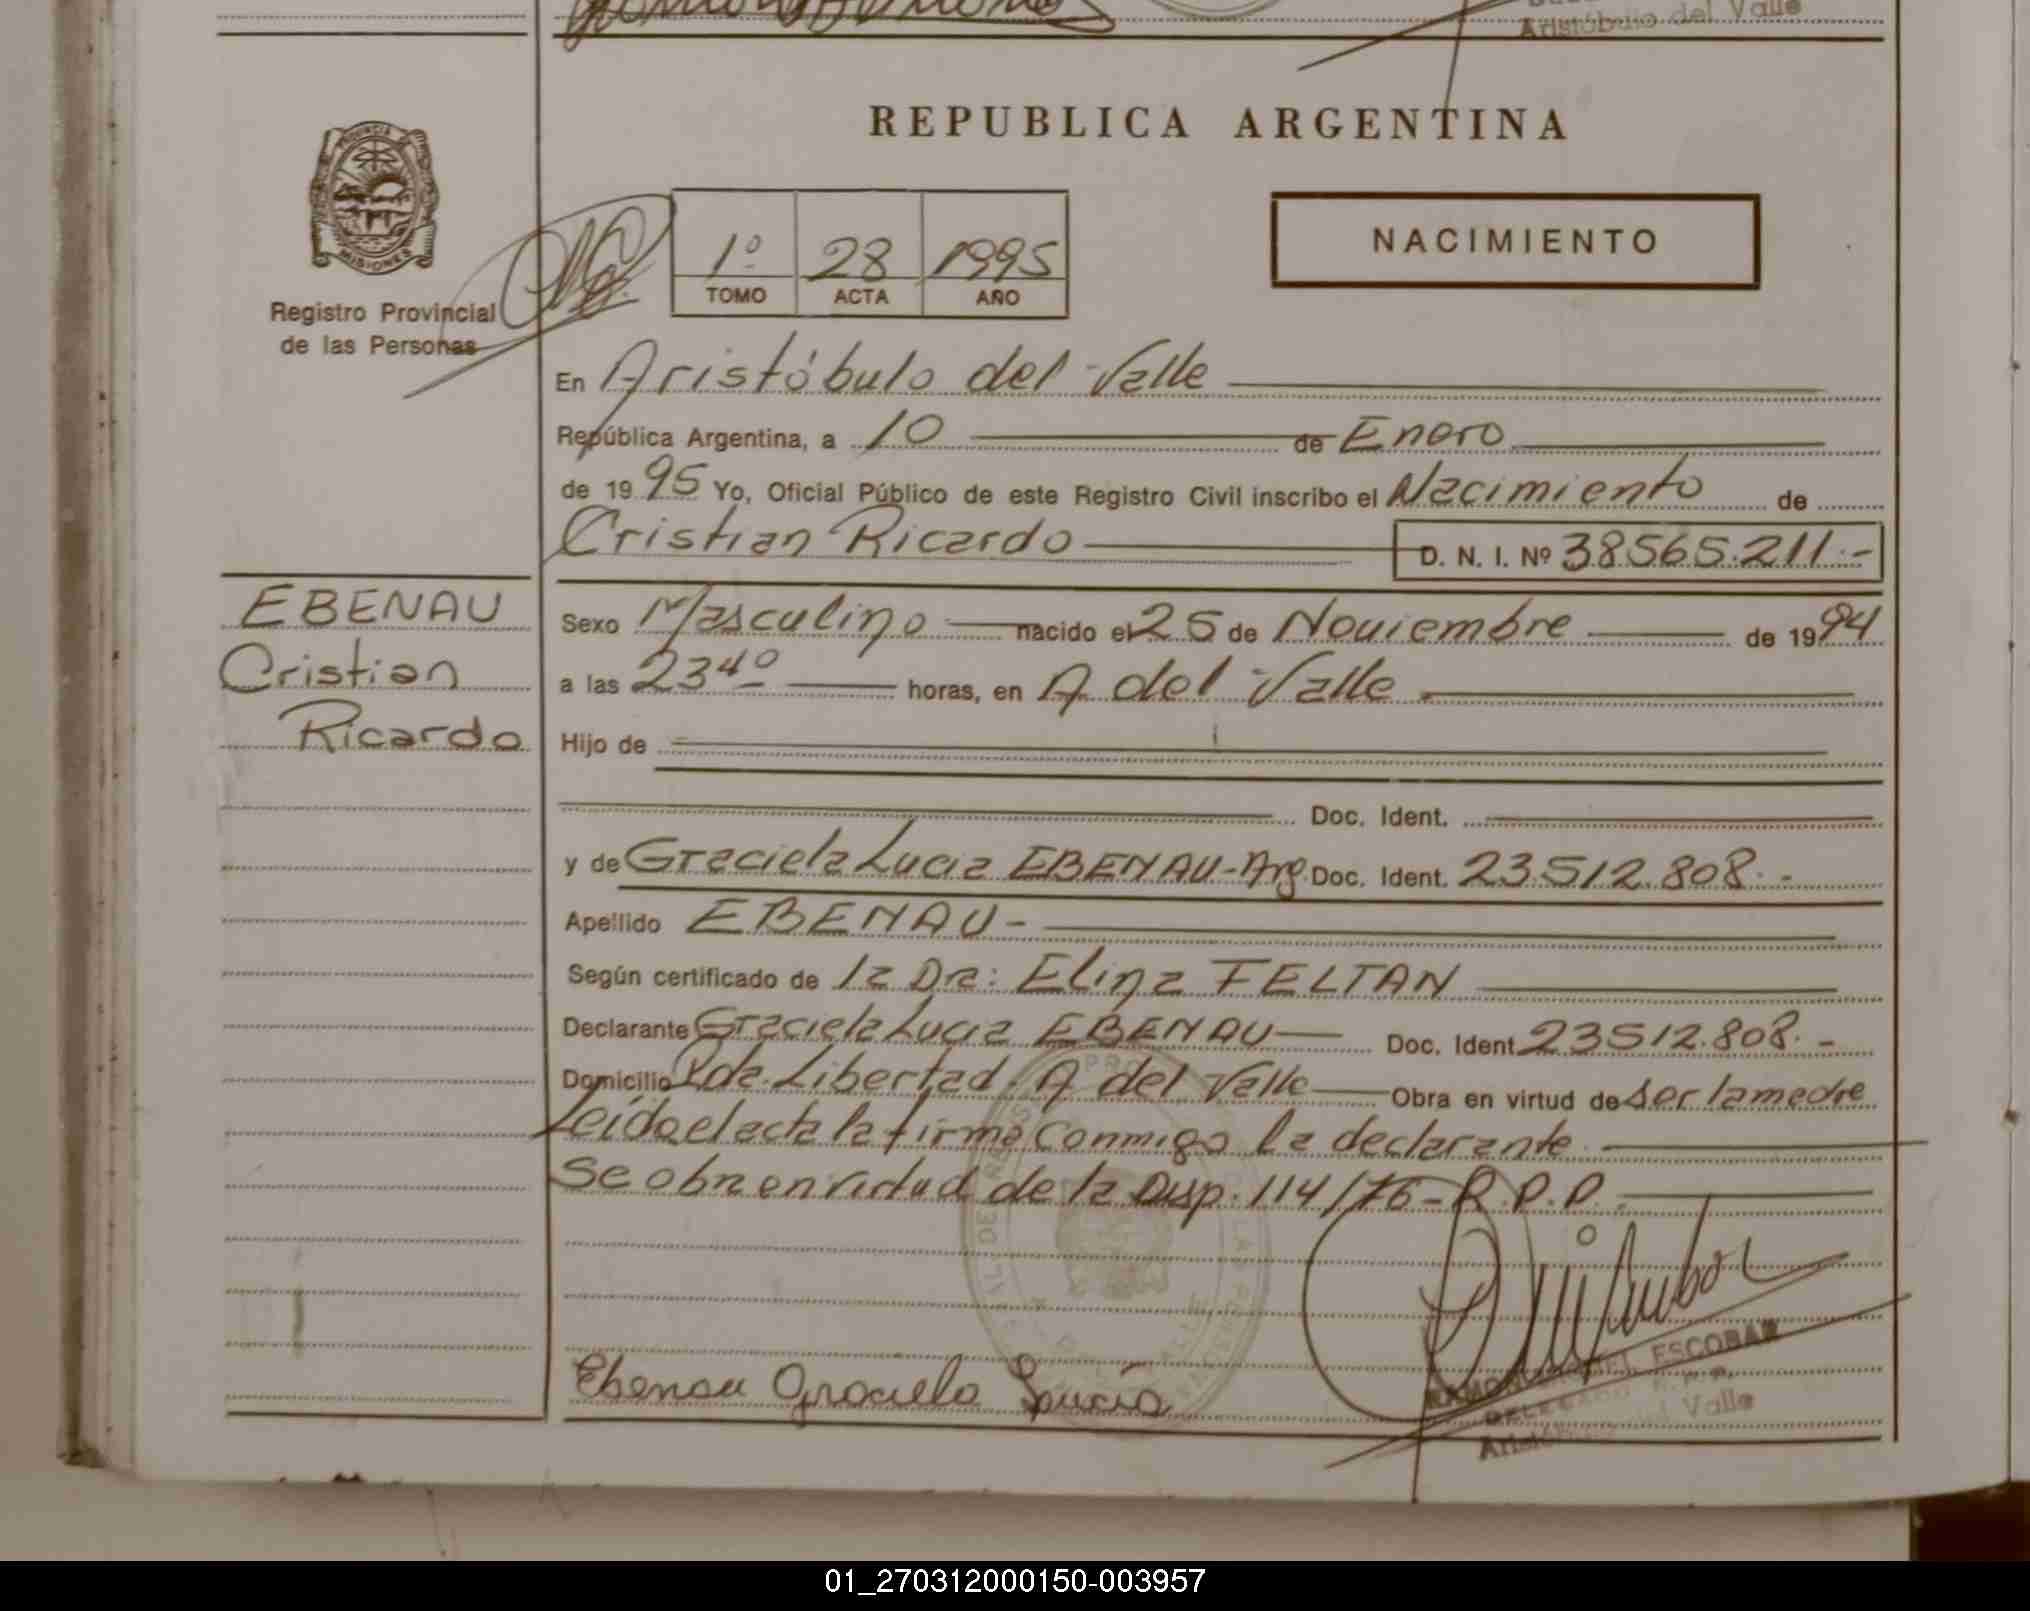 Aristóbulo del Valle
REPUBLICA ARGENTINA
PROVINCIA DE
MISIONES
Registro Provincial
de las Personas
1º 28 1995
TOMO ACTA AÑO
NACIMIENTO
En Aristóbulo del Valle
República Argentina, a 10 de Enero
de 1995 Yo, Oficial Público de este Registro Civil inscribo el Nacimiento de
Cristian Ricardo D. N. I. Nº 38565.211.-
EBENAU
Cristian
Ricardo
Sexo Masculino nacido el 25 de Noviembre de 1994
a las 23 40 horas, en A del Valle
Hijo de
Doc. Ident.
y de Graciela Lucia EBENAU-Arg. Doc. Ident. 23.512.808.-
Apellido EBENAU-
Según certificado de la Dra: Elina FELTAN
Declarante Graciela Lucia EBENAU Doc. Ident. 23512.808.-
Domicilio Pda. Libertad. A del Valle Obra en virtud de ser la madre
Leída el acta la firma conmigo la declarante.
Se obra en virtud de la Disp. 114/76-R.P.P.
Ebenau Graciela Lucia
RAMON ESCOBAR
Aristóbulo del Valle
01_270312000150-003957